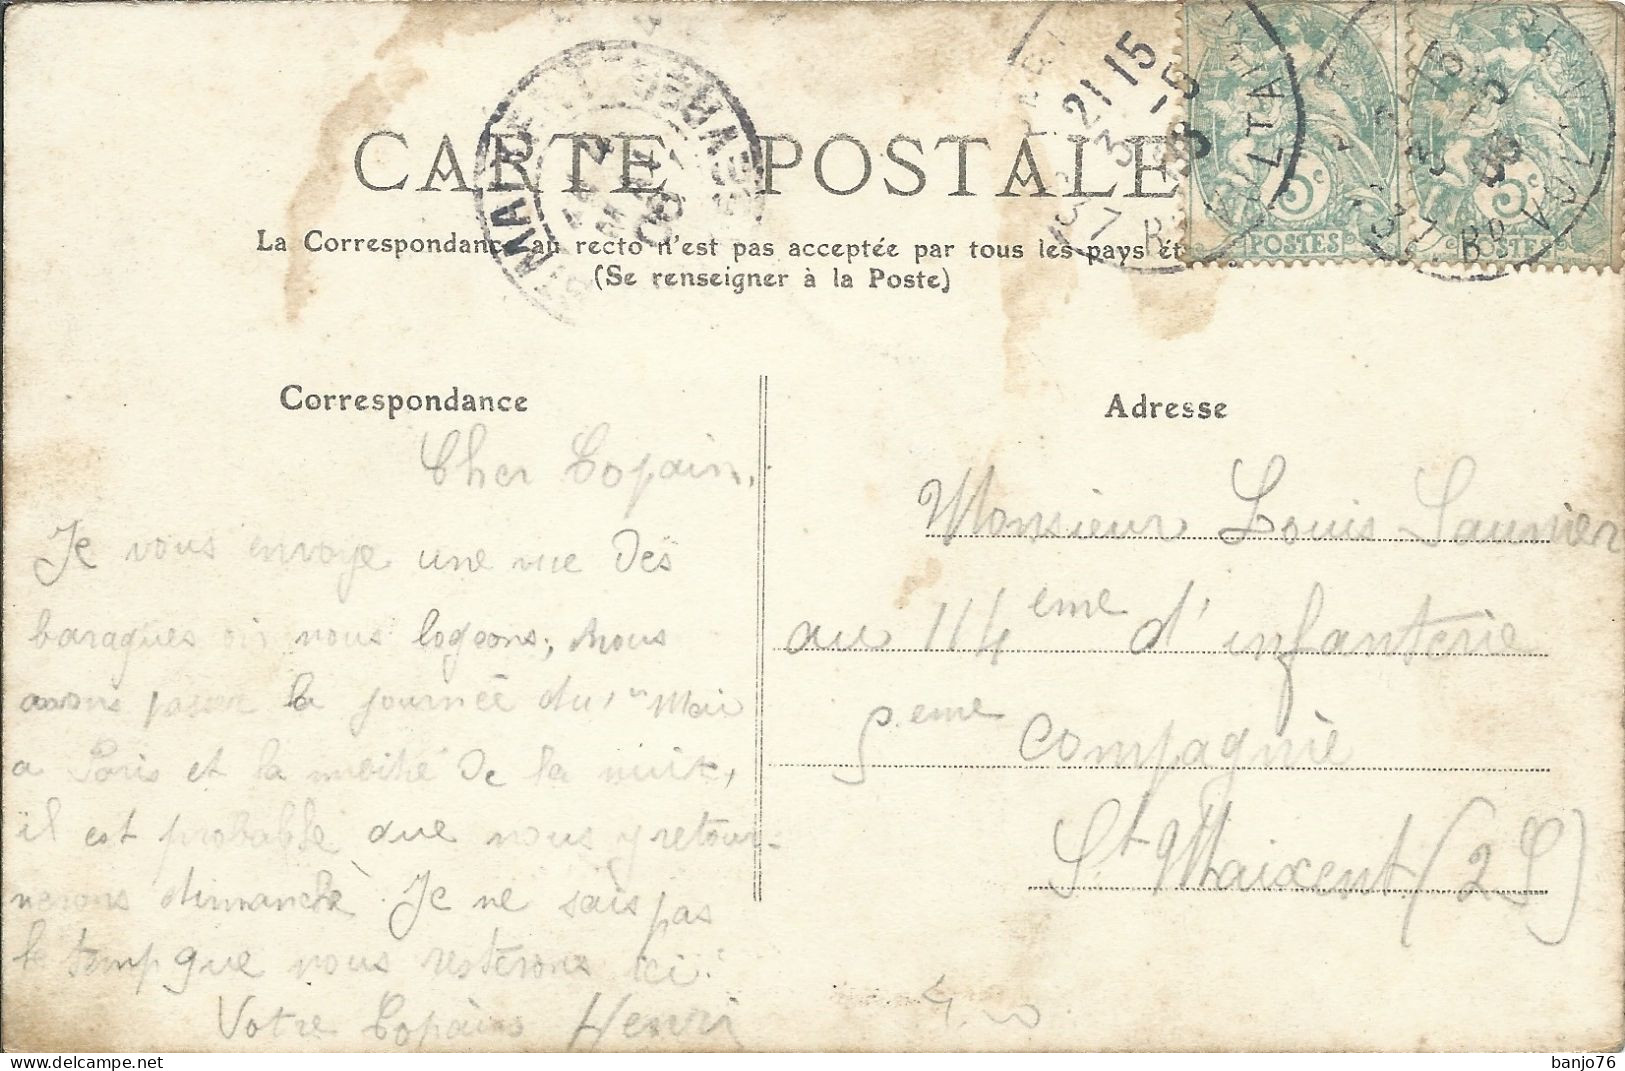 CARTE POSTALE
La Correspondance au recto n'est pas acceptée par tous les pays ét
(Se renseigner à la Poste)
21-15
3-5
06
POSTES
POSTES
Correspondance
Cher Copain,
Je vous envoye une vue des
baraques où nous logeons, Nous
avons passer la journée du 1er Mai
a Paris et la moitié de la nuit,
il est probable que nous y retour-
nerons dimanche. Je ne sais pas
le temp que nous resterons ici.
Votre Copain Henri
Adresse
Monsieur Louis Saunier
au 114eme d'infanterie
5.eme compagnie
St Maixent (2 S)
banjo76